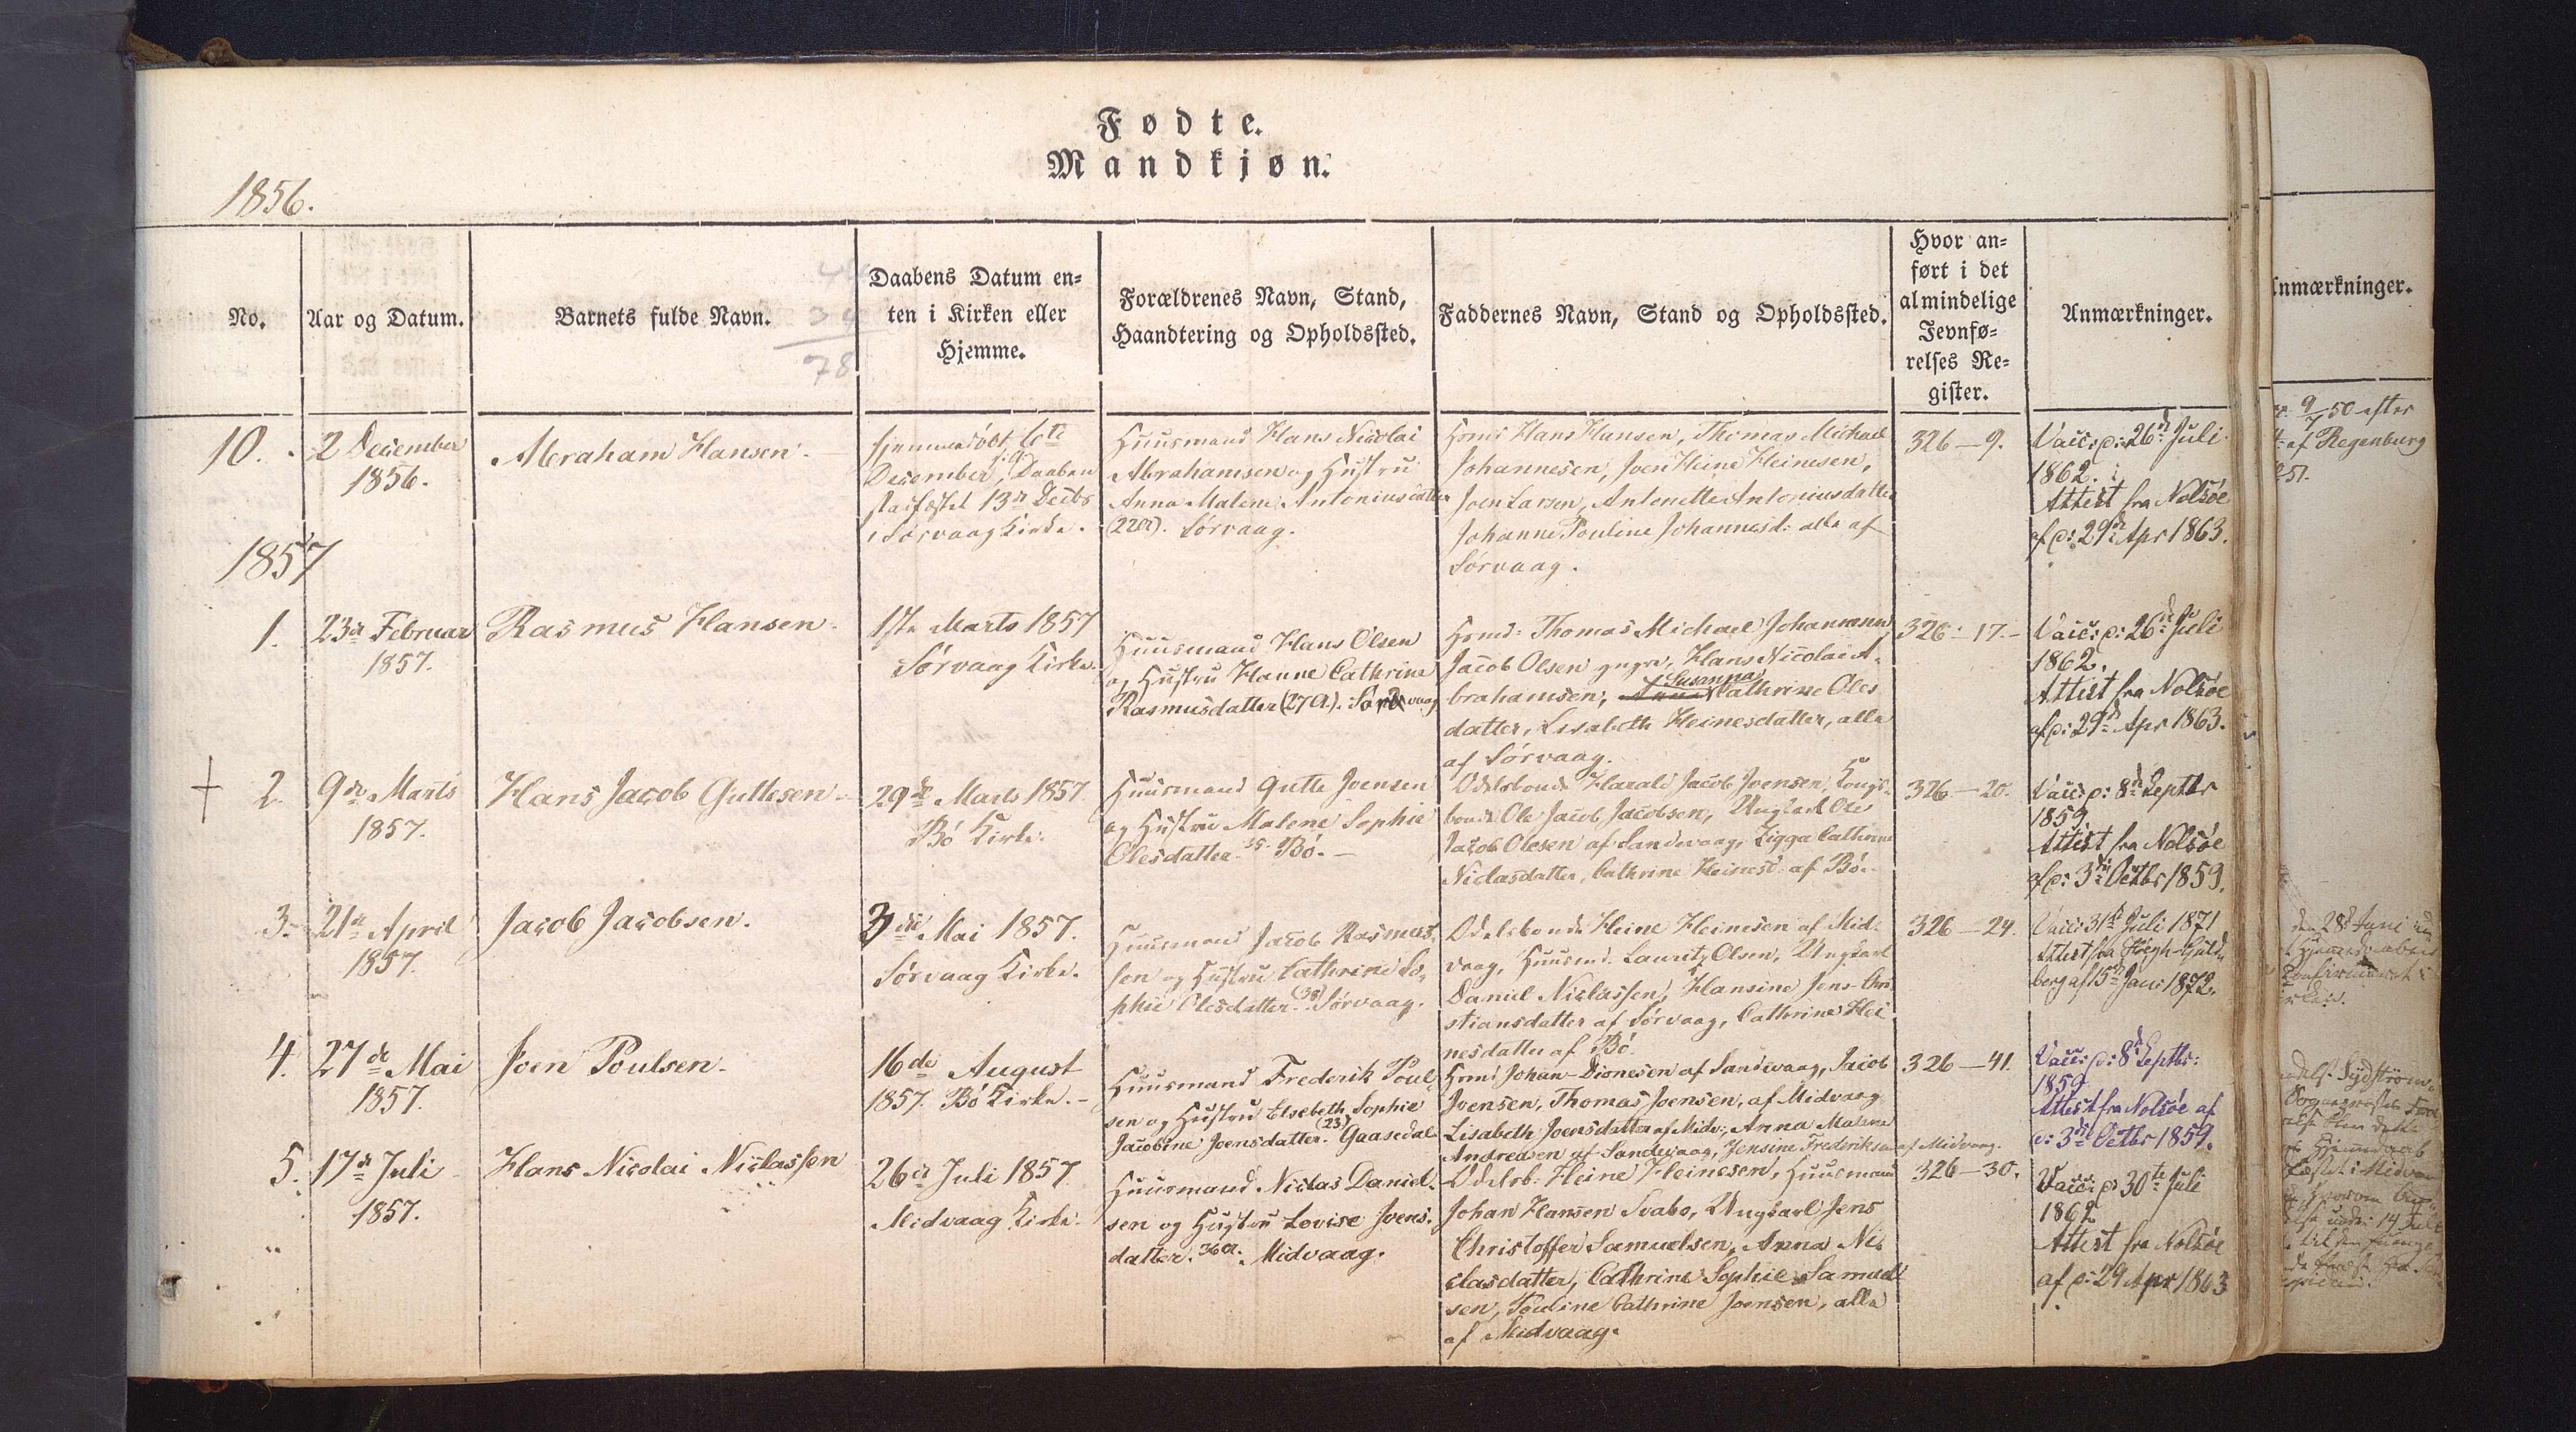 Fødte.
Mandkjøn.
1856.
No.
Aar og Datum.
Barnets fulde Navn.
Daabens Datum en-
ten i Kirken eller
Hjemme.
Forældrenes Navn, Stand,
Haandtering og Opholdssted.
Faddernes Navn, Stand og Opholdssted.
Hvor an-
ført i det
almindelige
Jevnfø-
relses Re-
gister.
Anmærkninger.
44
34
78
10.
2 December
1856.
Abraham Hansen.
hjemmedøbt 6te
December, Daaben
stadfæstet 13de Decbr
i Sørvaag Kirke.
Huusmand Hans Nicolai
Abrahamsen og Hustru
Anna Malene Antoniusdatter
(22a). Sørvaag.
Hmd Hans Hansen, Thomas Michael
Johannesen, Joen Heine Heinesen,
Joen Larsen, Antonette Antoniusdatter
Johanne Pouline Johannesd: alle af
Sørvaag.
326-9.
Vacc: d: 26de Juli
1862.
Attest fra Nolsøe
af d: 29de Apr 1863.
1857
1.
23de Februar
1857.
Rasmus Hansen.
1ste Marts 1857
Sørvaag Kirke.
Huusmand Hans Olsen
og Hustru Hanne Cathrine
Rasmusdatter (27a.). Sørvaag
Hmd: Thomas Michael Johannesen
Jacob Olsen yngre, Hans Nicolai A-
brahamsen, Susanna Cathrine Oles
datter, Lisabeth Heinesdatter, alle
af Sørvaag.
326-17.
Vacc: d: 26de Juli
1862.
Attest fra Nolsøe
af d: 29de Apr 1863.
2.
9de Marts
1857.
Hans Jacob Guttesen
29de Marts 1857
Bø Kirke.
Huusmand Gutte Joensen
og Hustru Malene Sophie
Olesdatter 35. Bø.
Odelsbonde Harald Jacob Joensen, Kongs-
bonde Ole Jacob Jacobsen, Ungkarl Ole
Jacob Olesen af Sandevaag, Zigga Cathrine
Niclasdatter, Cathrine Heinesd: af Bø.
326-20.
Vacc: d: 8de Septbr
1859.
Attest fra Nolsøe
af d: 3die Octbr 1859.
3.
21de April
1857.
Jacob Jacobsen.
3die Mai 1857.
Sørvaag Kirke.
Huusmand Jacob Rasmus-
sen og Hustru Cathrine So-
phie Olesdatter (38) Sørvaag.
Odelsbonde Heine Heinesen af Mid-
vaag, Huusmd. Lauritz Olsen, Ungkarl
Daniel Niclassen, Hansine Jens-Chri
stiansdatter af Sørvaag, Cathrine Hei
nesdatter af Bø.
326-24.
Vacc: 31te Juli 1871
Attest fra Høegh-Guld-
berg af 15de Jan: 1872.
4.
27de Mai
1857.
Joen Poulsen.
16de August
1857. Bø Kirke.
Huusmand Frederik Poul-
sen og Hustru Elsebeth Sophie
Jacobine Joensdatter. (23) Gaasedal
Hmd Johan-Dionesen af Sandevaag, Jacob
Joensen, Thomas Joensen, af Midvaag
Lisabeth Joensdatter af Midv:, Anna Malene
Andreasen af Sandevaag, Jensine Frederiksen af Midvaag.
326-41.
Vacc: d: 8de Septbr:
1859
Attest fra Nolsøe af
d: 3die Octbr 1859.
5.
17de Juli
1857.
Hans Nicolai Niclassen
26de Juli 1857
Midvaag Kirke.
Huusmand Niclas Daniel-
sen og Hustru Lovise Joens-
datter. 36a. Midvaag.
Odelsb: Heine Heinesen, Huusmand
Johan Hansen Svabo, Ungkarl Jens
Christoffer Samuelsen, Anna Ni-
clasdatter, Cathrine Sophie Samuel
sen, Pouline Cathrine Joensen, alle
af Midvaag.
326-30.
Vacc: d: 30te Juli
1862
Attest fra Nolsøe
af d: 29 Apr 1863
nmærkninger.
9/7 50 efter
af Regenburg
251.